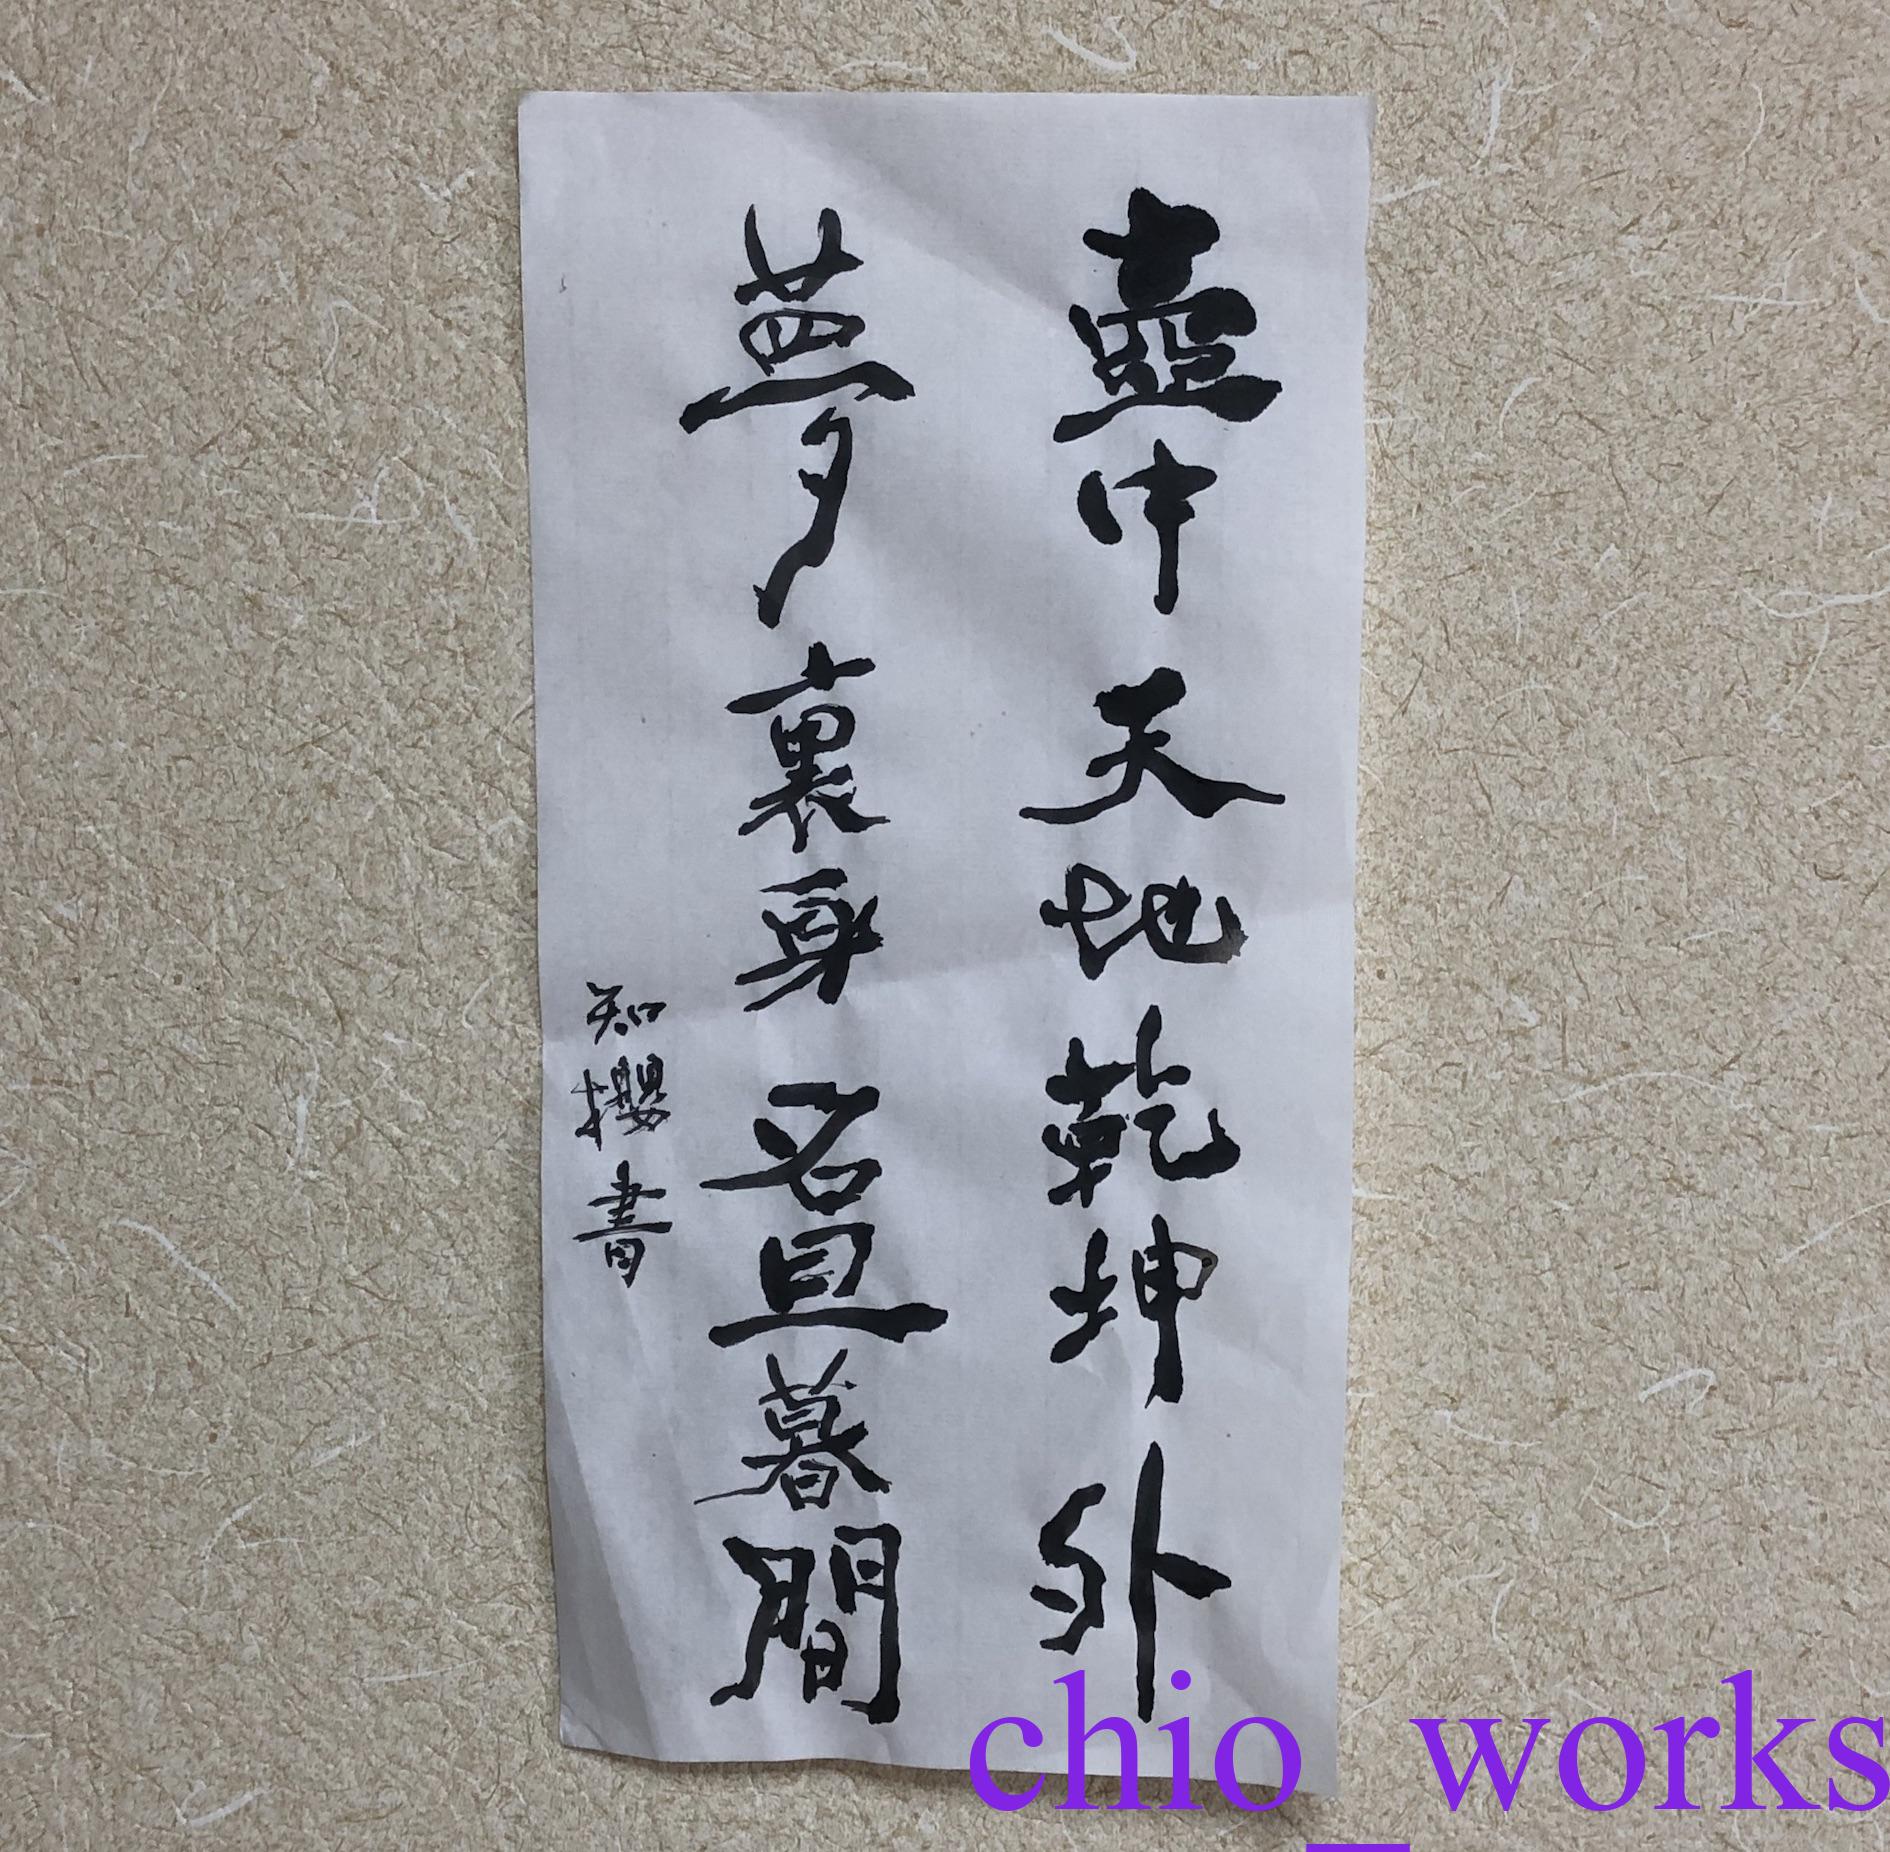 壺中天地乾坤外
夢裏身名旦暮間
知櫻書
chio_works